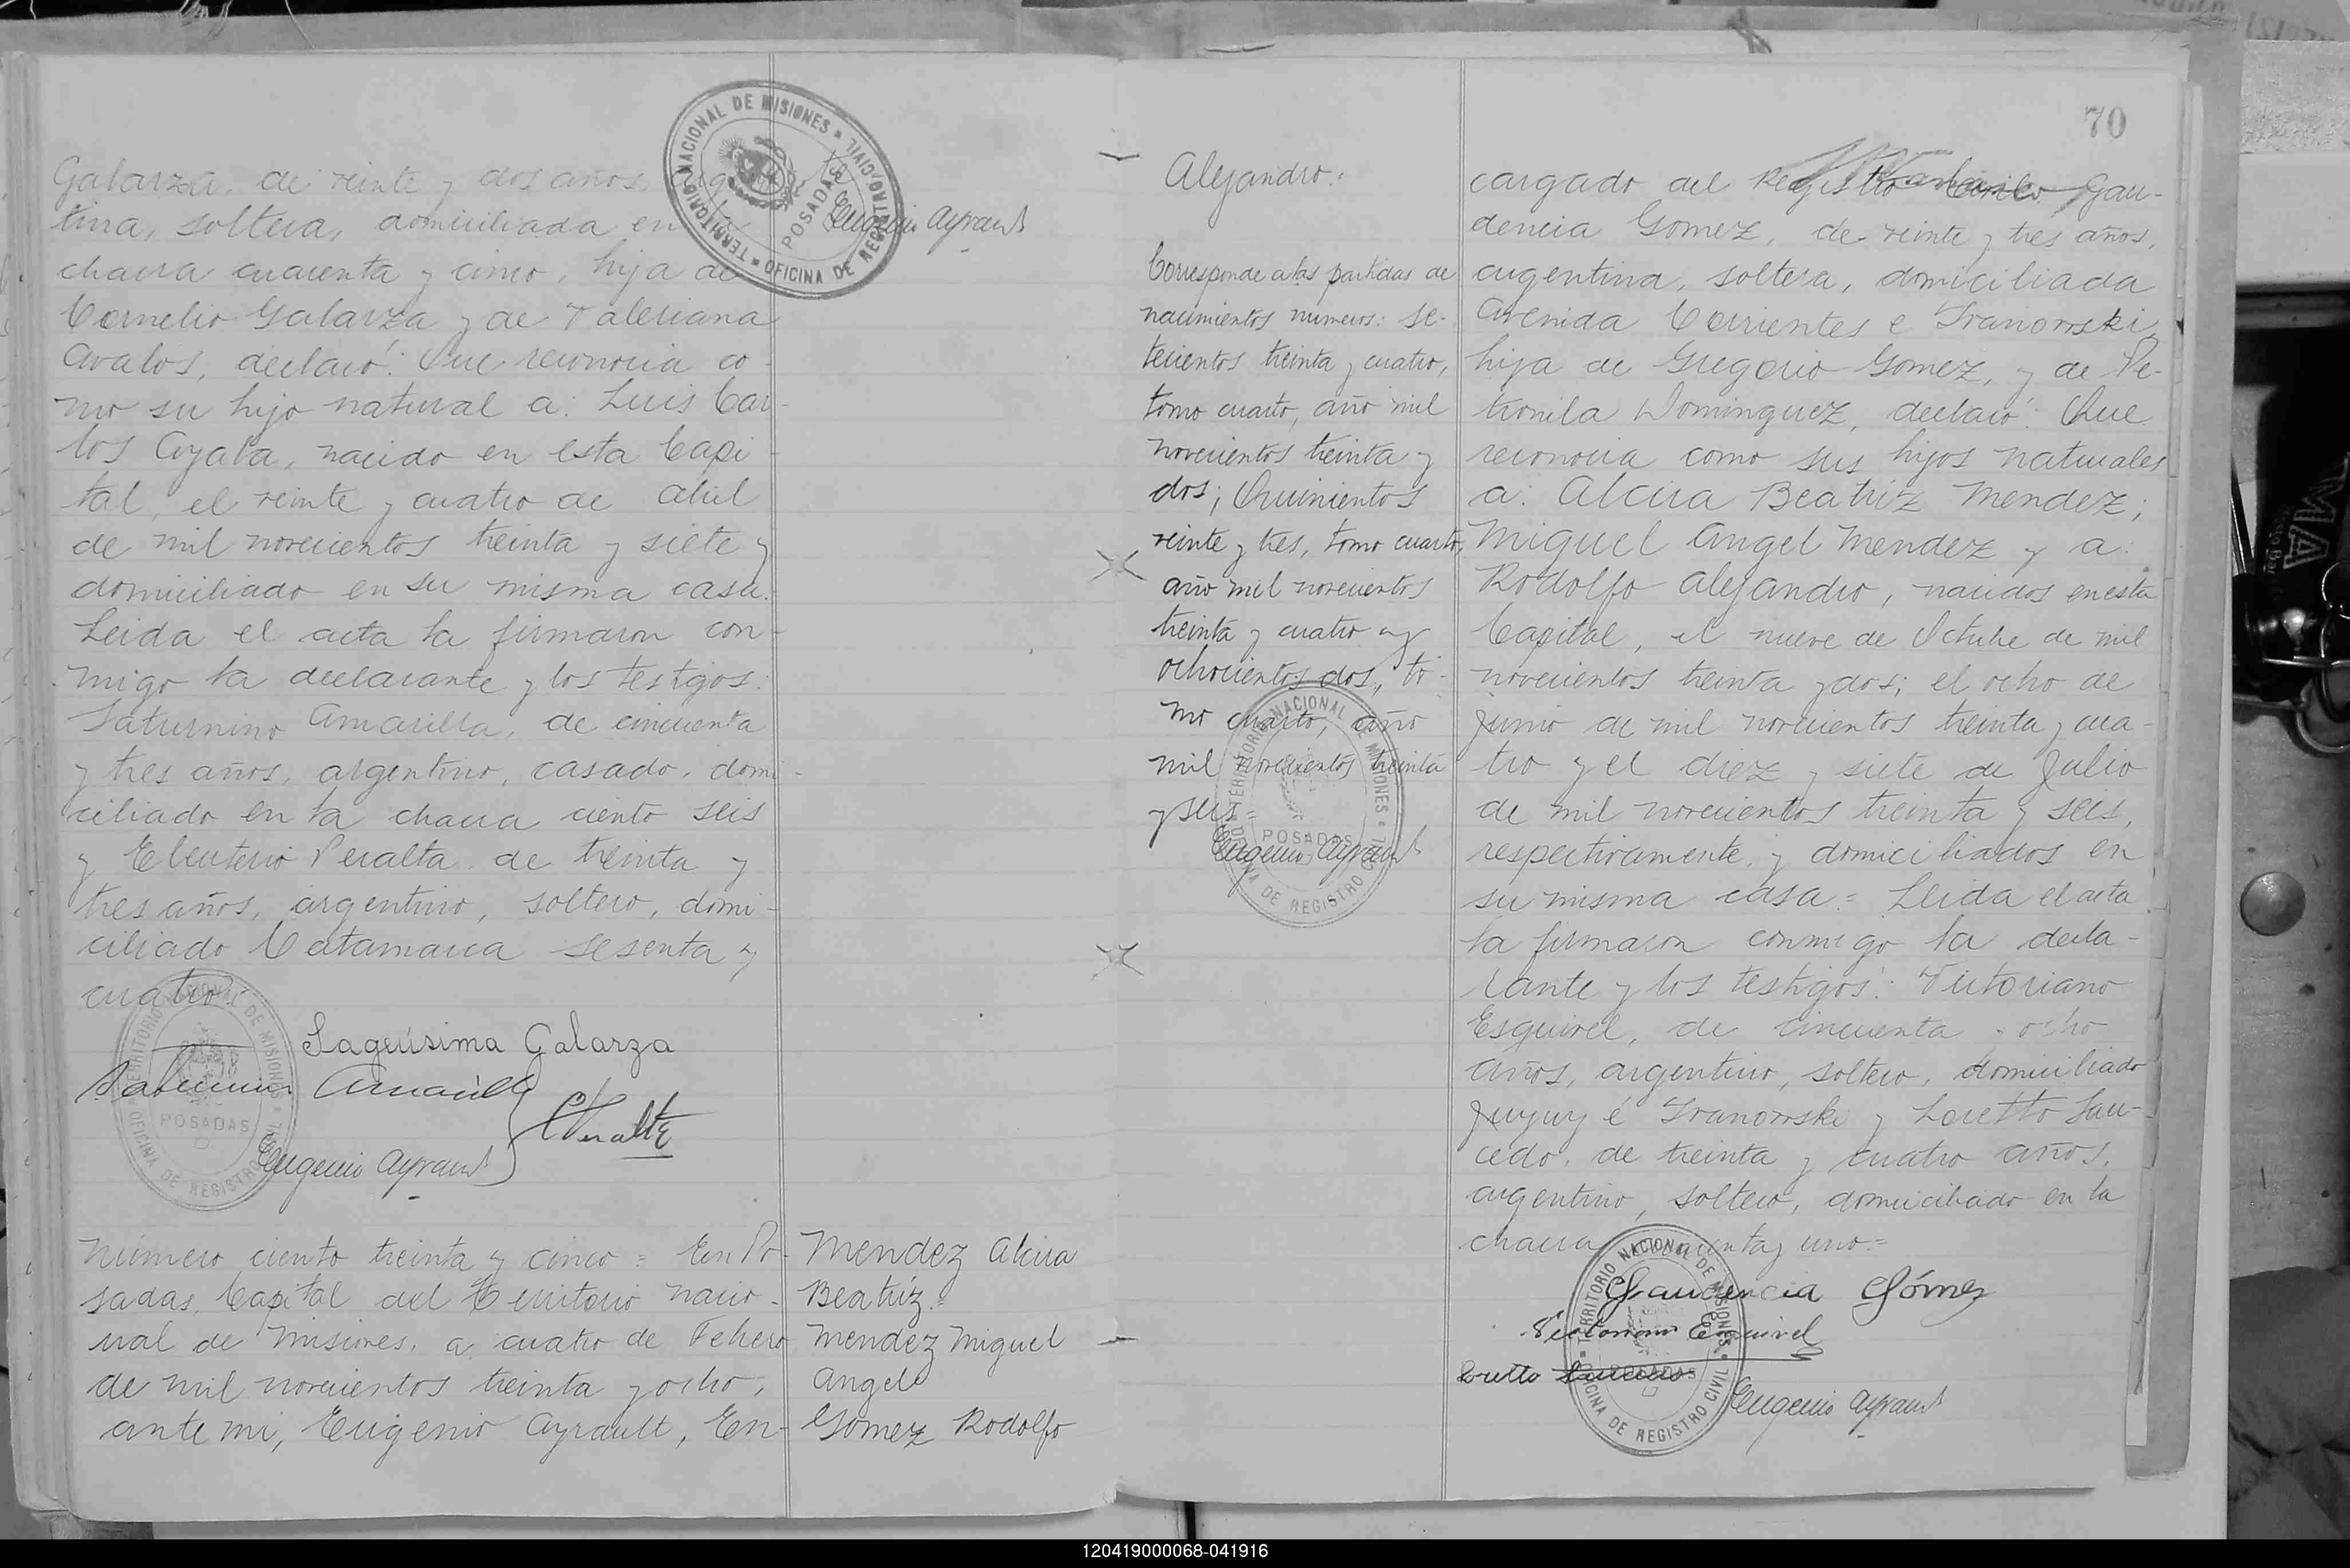 Galarza, de veinte y dos años, argen
tina, soltera, domiciliada en la
chacra cuarenta y cinco, hija de
Cornelio Galarza y de Valeriana
Avalos, declaró: Que reconocia co-
mo su hijo natural a: Luis Car-
los Ayala, nacido en esta Capi-
tal, el veinte y cuatro de Abril
de mil novecientos treinta y siete y
domiciliado en su misma casa.
Leida el acta la firmaron con-
migo la declarante y los testigos:
Saturnino Amarilla, de cincuenta
y tres años, argentino, casado, domi-
ciliado en la chacra ciento seis
y Eleuterio Peralta de treinta y
tres años, argentino, soltero, domi-
ciliado Catamarca sesenta y
cuatro=
TERRITORIO NACIONAL DE MISIONES
POSADAS
OFICINA DE REGISTRO CIVIL
Eugenio Ayrault
Galarza
Saturnino Amarilla
EPeralta
TERRITORIO NACIONAL DE MISIONES
POSADAS
OFICINA DE REGISTRO CIVIL
Eugenio Ayrault
Número ciento treinta y cinco = En Po-
sadas, Capital del Territorio nacio-
nal de Misiones, a cuatro de Febrero
de mil novecientos treinta y ocho,
ante mi, Eugenio Ayrault, En-
Mendez Alcira
Beatriz=
Mendez Miguel
Angel
Gomez Rodolfo
70
Alejandro=
Corresponde a las partidas de
nacimientos números: se-
tecientos treinta y cuatro,
tomo cuarto, año mil
novecientos treinta y
dos; Quinientos
veinte y tres, tomo cuarto,
año mil novecientos
treinta y cuatro y
ochocientos dos, to-
mo cuarto, año
mil novecientos treinta
y seis=
TERRITORIO NACIONAL DE MISIONES
POSADAS
OFICINA DE REGISTRO CIVIL
Eugenio Ayrault
cargado del Registro Civil, Gau-
dencia Gomez, de veinte y tres años,
argentina, soltera, domiciliada
Avenida Corrientes e Ivanowski,
hija de Gregorio Gomez, y de Pe-
tronila Dominguez, declaró: Que
reconocia como sus hijos naturales
a: Alcira Beatriz Mendez;
Miguel Angel Mendez y a:
Rodolfo Alejandro, nacidos en esta
Capital, el nueve de Octubre de mil
novecientos treinta y dos; el ocho de
Junio de mil novecientos treinta y cua-
tro y el diez y siete de Julio
de mil novecientos treinta y seis,
respectivamente, y domiciliados en
su misma casa= Leida el acta
la firmaron conmigo la decla-
rante y los testigos: Victoriano
Esquivel, de cincuenta y ocho
años, argentino, soltero, domiciliado
Jujuy é Ivanowski y Loretto Sau-
cedo, de treinta y cuatro años,
argentino, soltero, domiciliado en la
chacra y uno=
Gaudencia Gómez
Victoriano Esquivel
Loretto Saucedo
TERRITORIO NACIONAL DE MISIONES
POSADAS
OFICINA DE REGISTRO CIVIL
Eugenio Ayrault
120419000068-041916